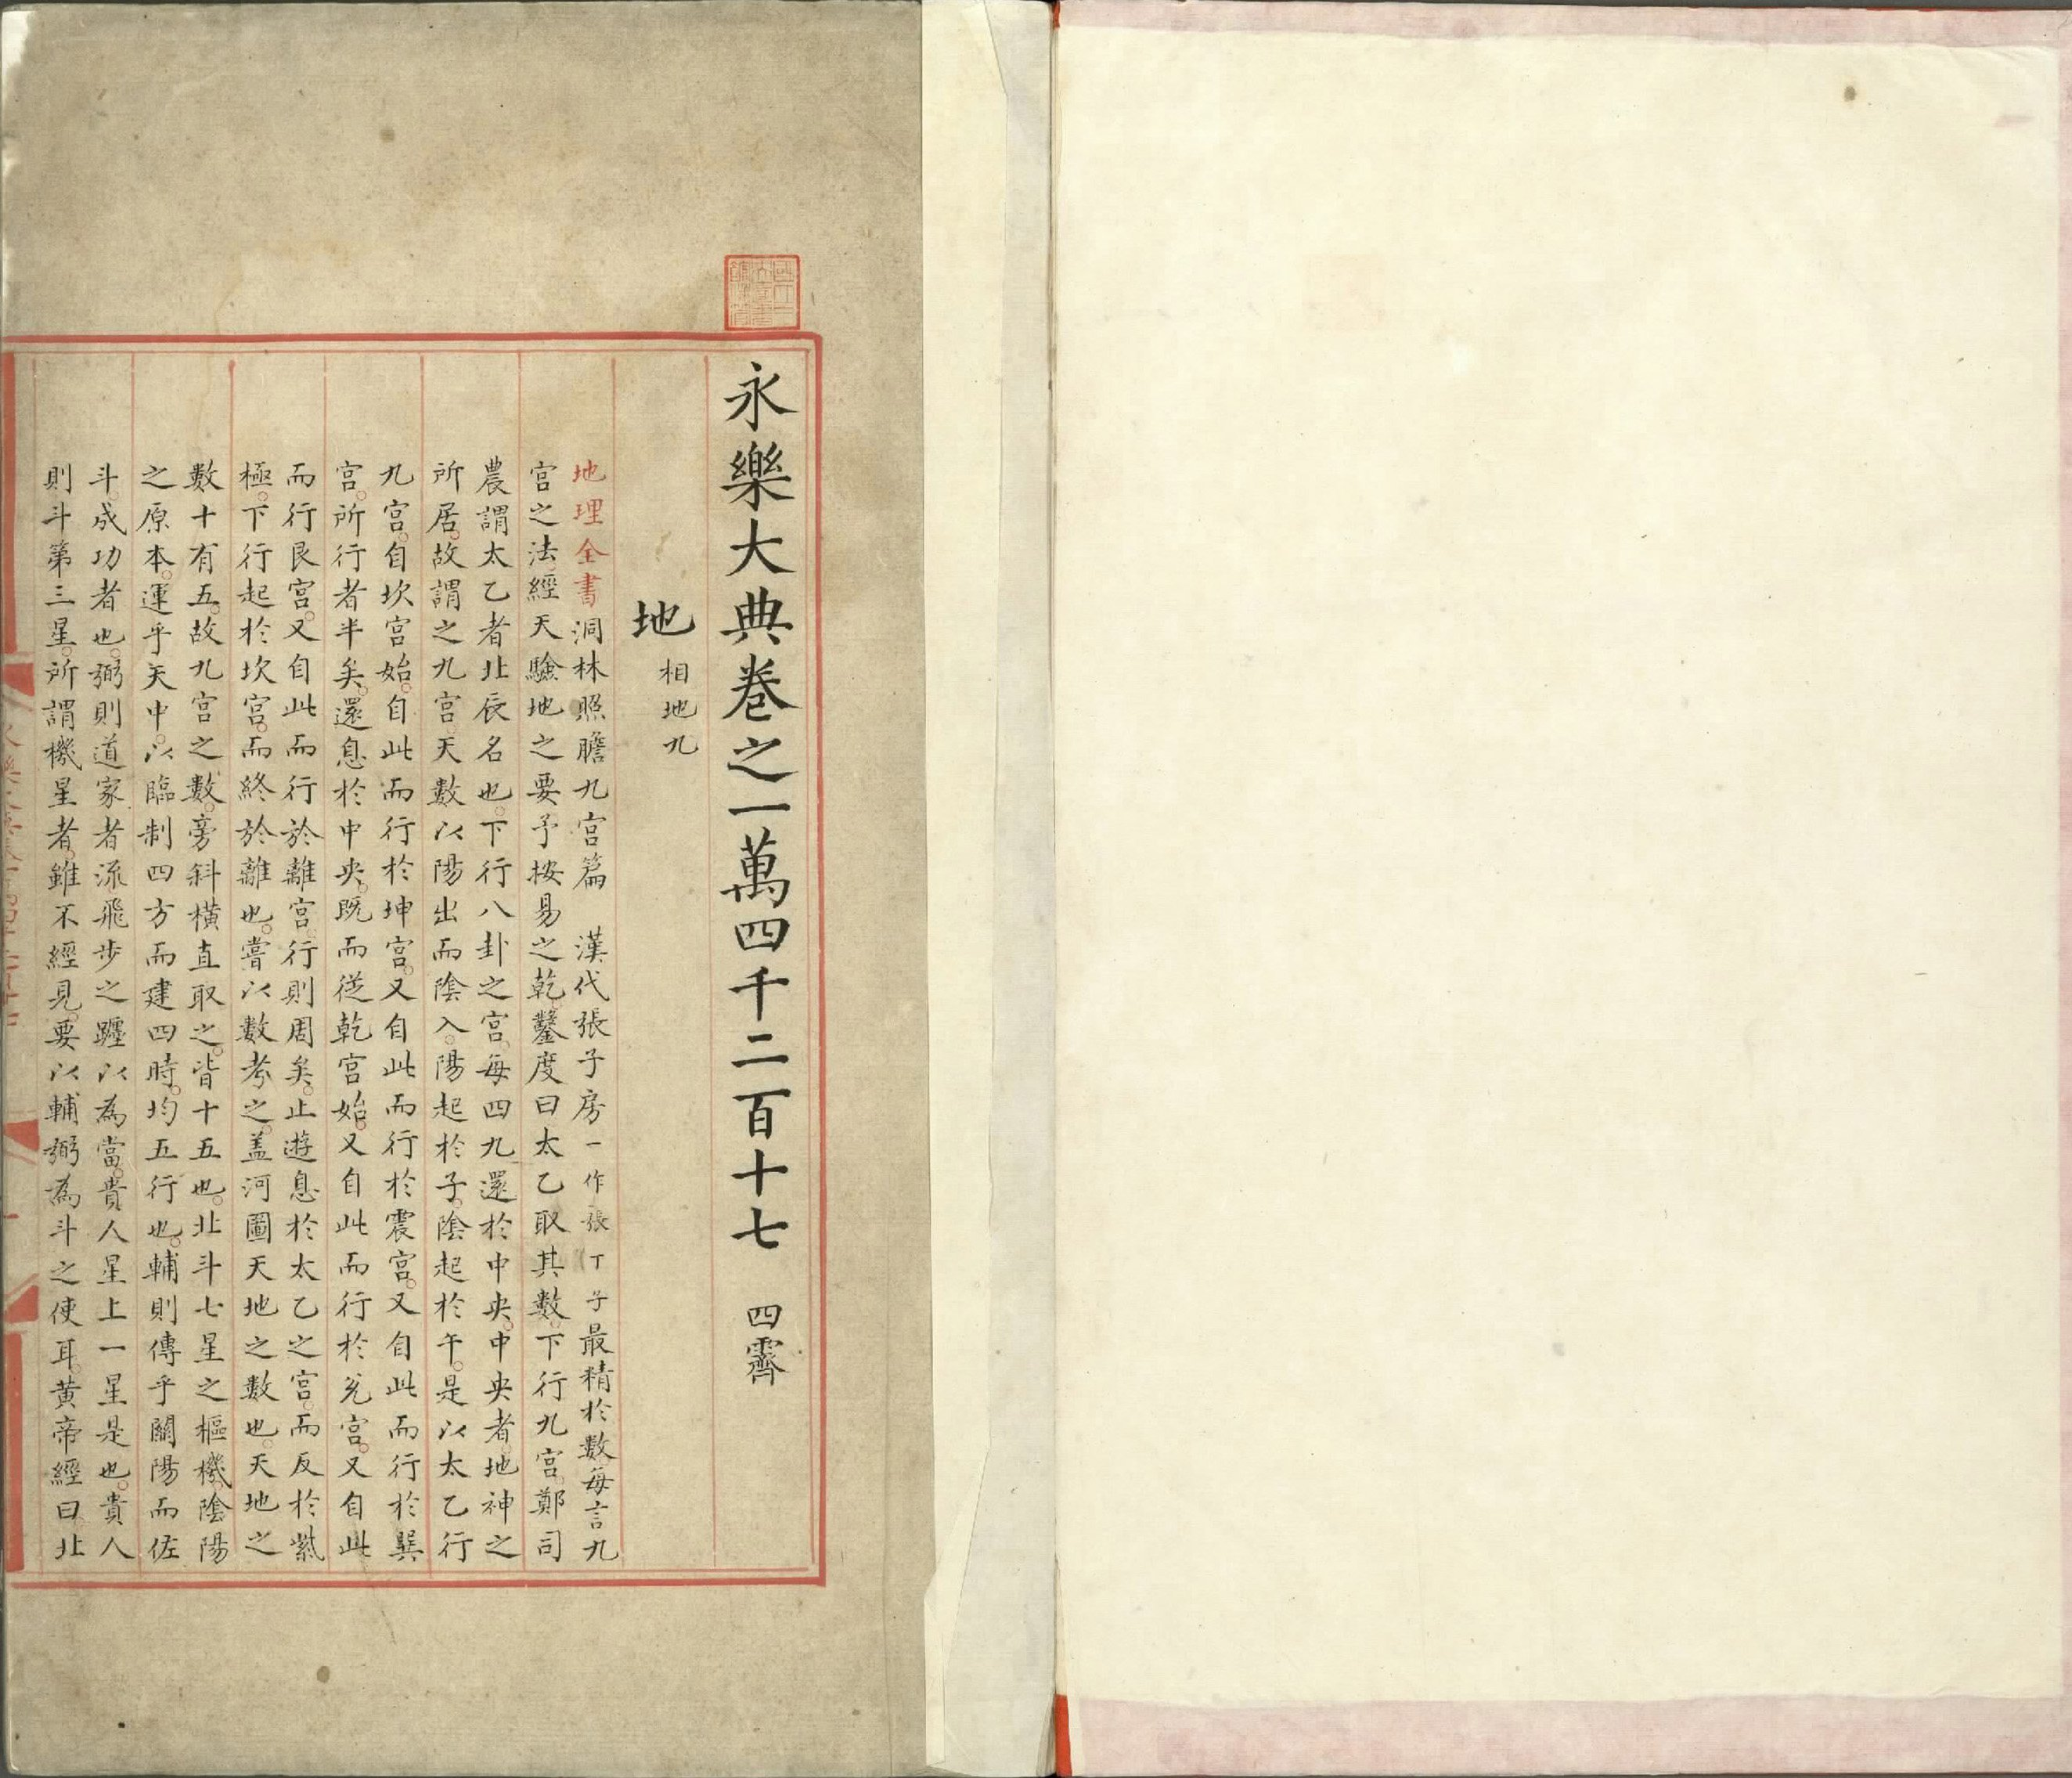 永樂大典卷之一萬四千二百十七 四霽
地 相地九
地理全書洞林照膽九宮篇 漢代張子房一作張丁子最精於數每言九
宮之法經天驗地之要予按易之乾鑿度曰太乙取其數下行九宮鄭司
農謂太乙者北辰名也下行八卦之宮每四九還於中央中央者地神之
所居故謂之九宮天數以陽出而陰入陽起於子陰起於午是以太乙行
九宮自坎宮始自此而行於坤宮又自此而行於震宮又自此而行於巽
宮所行者半矣還息於中央既而從乾宮始又自此而行於兊宮又自此
而行艮宮又自此而行於離宮行則周矣止遊息於太乙之宮而反於紫
極下行起於坎宮而終於離也嘗以數考之盖河圖天地之數也天地之
數十有五故九宮之數旁斜橫直取之皆十五也北斗七星之樞機陰陽
之原本運乎天中以臨制四方而建四時均五行也輔則傳乎闢陽而佐
斗成功者也弼則道家者流飛步之躔以為當貴人星上一星是也貴人
則斗第三星所謂機星者雖不經見要以輔弼為斗之使耳黃帝經曰北